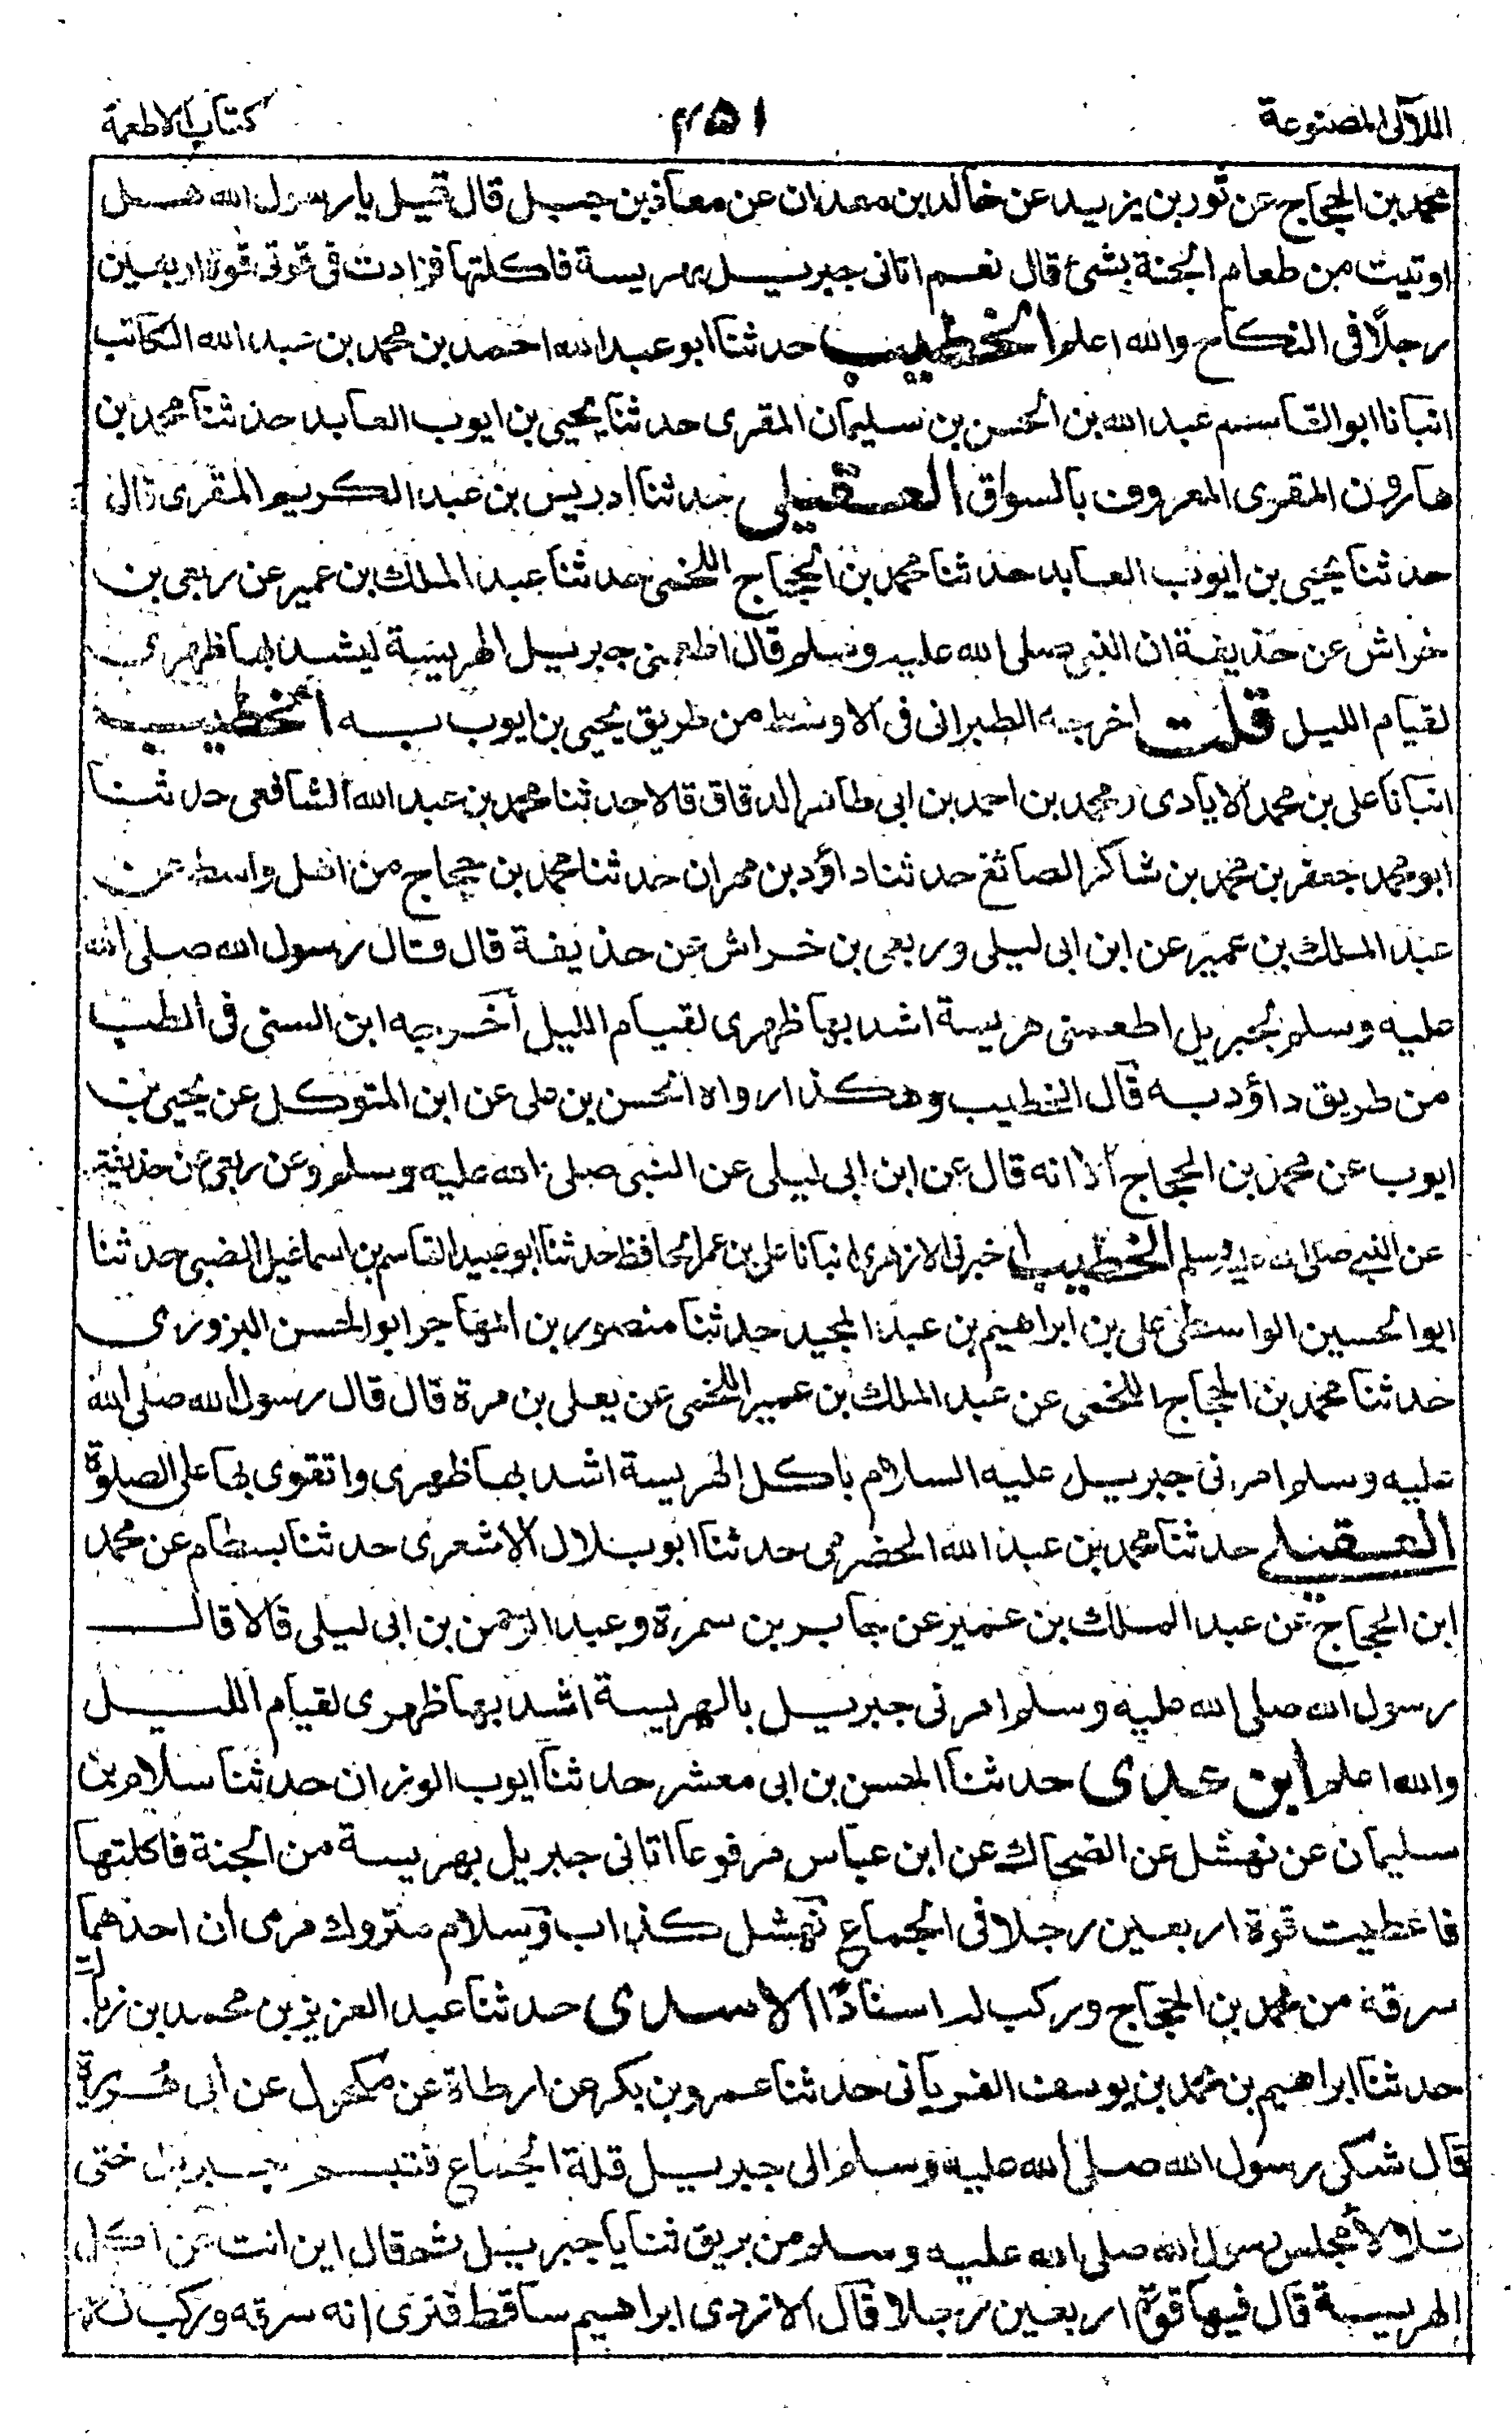 اللآلى المصنوعة
٤٥١
كتاب الاطعمة
محمد بن الحجاج عن ثور بن يزيد عن خالد بن معدان عن معاذ بن جبل قال قيل يا رسول الله هل
اوتيت من طعام الجنة بشئ قال نعم اتانى جبريل بهريسة فاكلتها فزادت فى قوتى قوة اربعين
رجلًا فى النكاح والله اعلم الخطيب حدثنا ابو عبد الله احمد بن محمد بن عبد الله الكاتب
انبانا ابو القاسم عبد الله بن الحسن بن سليمان المقرى حدثنا يحيى بن ايوب العابد حدثنا محمد بن
هارون المقرى المعروف بالسواق العقيلى حدثنا ادريس بن عبد الكريم المقرى قال
حدثنا يحيى بن ايوب العابد حدثنا محمد بن الحجاج اللخمى حدثنا عبد الملك بن عمير عن ربعى بن
خراش عن حذيفة ان النبى صلى الله عليه وسلم قال اطعمنى جبريل الهريسة ليشد بها ظهرى
لقيام الليل قلت اخرجه الطبرانى فى الاوسط من طريق يحيى بن ايوب به الخطيب
انبانا على بن محمد الايادى ومحمد بن احمد بن ابى طاهر الدقاق قالا حدثنا محمد بن عبد الله الشافعى حدثنا
ابو محمد جعفر بن محمد بن شاكر الصائغ حدثنا داؤد بن مهران حدثنا محمد بن حجاج من اهل واسط عن
عبد الملك بن عمير عن ابن ابى ليلى وربعى بن خراش عن حذيفة قال قال رسول الله صلى الله
عليه وسلم لجبريل اطعمنى هريسة اشد بها ظهرى لقيام الليل آخرجه ابن السنى فى الطب
من طريق داؤد به قال الخطيب وهكذا رواه الحسن بن على عن ابن المتوكل عن يحيى بن
ايوب عن محمد بن الحجاج الا انه قال عن ابن ابى ليلى عن النبى صلى الله عليه وسلم وعن ربعى عن حذيفة
عن النبى صلى الله عليه وسلم الخطيب اخبرنى الازهرى انبانا على بن عمر الحافظ حدثنا ابو عبيد القاسم بن اسماعيل الضبى حدثنا
ابو الحسين الواسطى على بن ابراهيم بن عبد المجيد حدثنا منصور بن المهاجر ابو الحسن البزورى
حدثنا محمد بن الحجاج اللخمى عن عبد الملك بن عمير اللخمى عن يعلى بن مرة قال قال رسول الله صلى الله
عليه وسلم امرنى جبريل عليه السلام باكل الهريسة اشد بها ظهرى واتقوى بها على الصلوة
العقيلى حدثنا محمد بن عبد الله الحضرمى حدثنا ابو بلال الاشعرى حدثنا بسطام عن محمد
ابن الحجاج عن عبد الملك بن عمير عن جابر بن سمرة وعبد الرحمن بن ابى ليلى قالا قال
رسول الله صلى الله عليه وسلم امرنى جبريل بالهريسة اشد بها ظهرى لقيام الليل
والله اعلم ابن عدى حدثنا الحسن بن ابى معشر حدثنا ايوب الوزان حدثنا سلام بن
سليمان عن نهشل عن الضحاك عن ابن عباس مرفوعا اتانى جبريل بهريسة من الجنة فاكلتها
فاعطيت قوة اربعين رجلا فى الجماع نهشل كذاب وسلام متروك فرمى ان احدهما
سرقه من محمد بن الحجاج وركب له اسنادًا الاسدى حدثنا عبد العزيز بن محمد بن زبالة
حدثنا ابراهيم بن محمد بن يوسف الفريابى حدثنا عمرو بن بكر عن ارطاة عن مكحول عن ابى هريرة
قال شكى رسول الله صلى الله عليه وسلم الى جبريل قلة الجماع فتبسم جبريل حتى
تلالأ مجلس رسول الله صلى الله عليه وسلم من بريق ثنايا جبريل ثم قال اين انت عن اكل
الهريسة قال فيها قوة اربعين رجلا قال الازدى ابراهيم ساقط فنرى انه سرقه وركب له